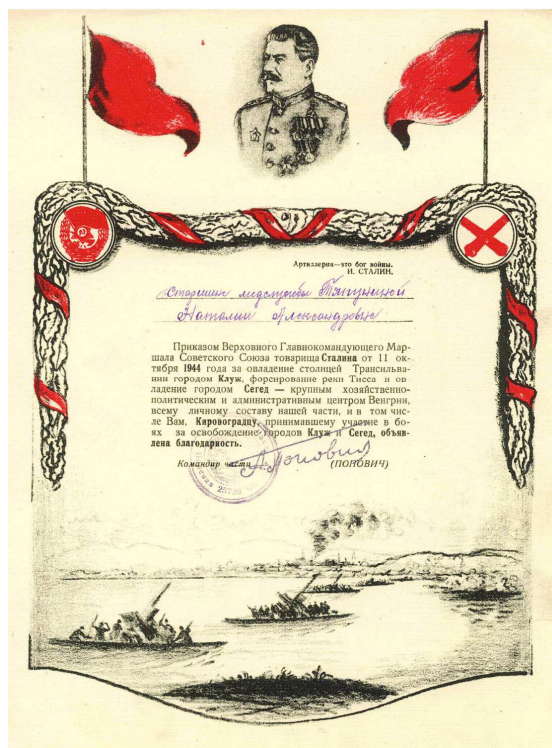 Артиллерия—это бог войны.
И. СТАЛИН.
Старшине медслужбы Тягуниной
Наталии Александровне
Приказом Верховного Главнокомандующего Мар-
шала Советского Союза товарища Сталина от 11 ок-
тября 1944 года за овладение столицей Трансильва-
нии городом Клуж, форсирование реки Тисса и ов-
ладение городом Сегед — крупным хозяйственно-
политическим и административным центром Венгрии,
всему личному составу нашей части, и в том чис-
ле Вам, Кировоградцу, принимавшему участие в бо-
ях за освобождение городов Клуж и Сегед, объяв-
лена благодарность.
Командир части
(ПОПОВИЧ)
25720